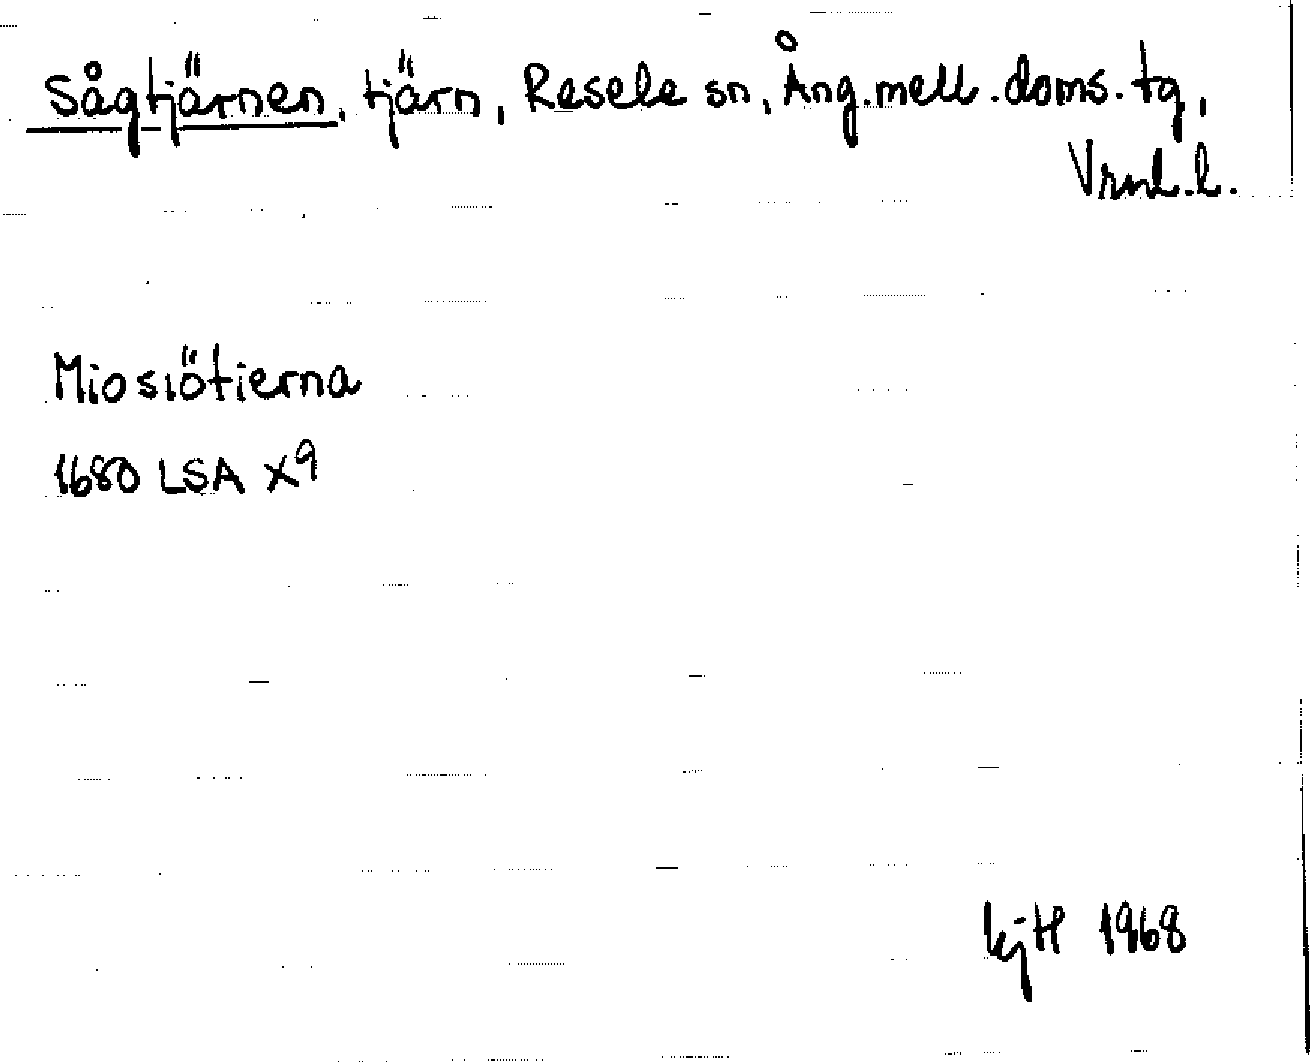 Sågtjärnen, tjärn, Resele sn, Ång.mell.doms.tg,
Vrnl.l.
Miosiötierna
1680 LSA X9
1968